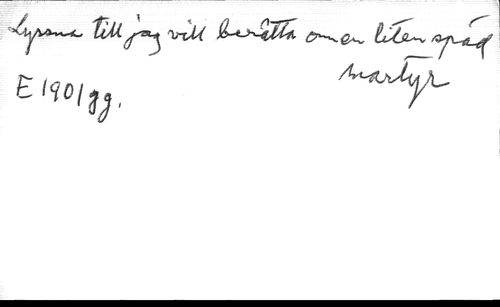 Lyssna till jag vill berätta om en liten späd
martyr
E 1901 gg.